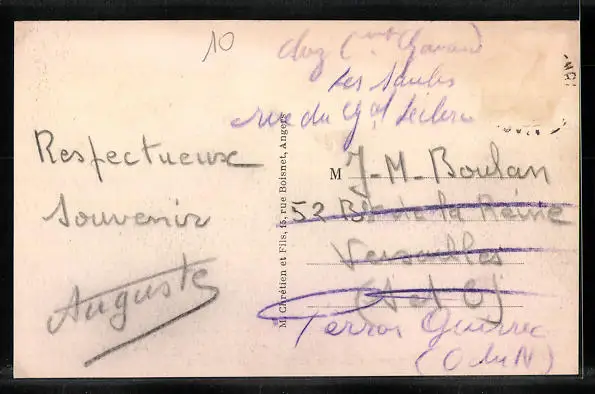 10
Respectueux
Souvenir
Auguste
M. Chrétien et Fils, 15, rue Boisnet, Angers
chez Cmt
Les Saules
rue du Gal Leclerc
M J-M-Boulan
52 Bd de la Reine
Versailles
(S et O)
Perros Guirrec
(C du N)